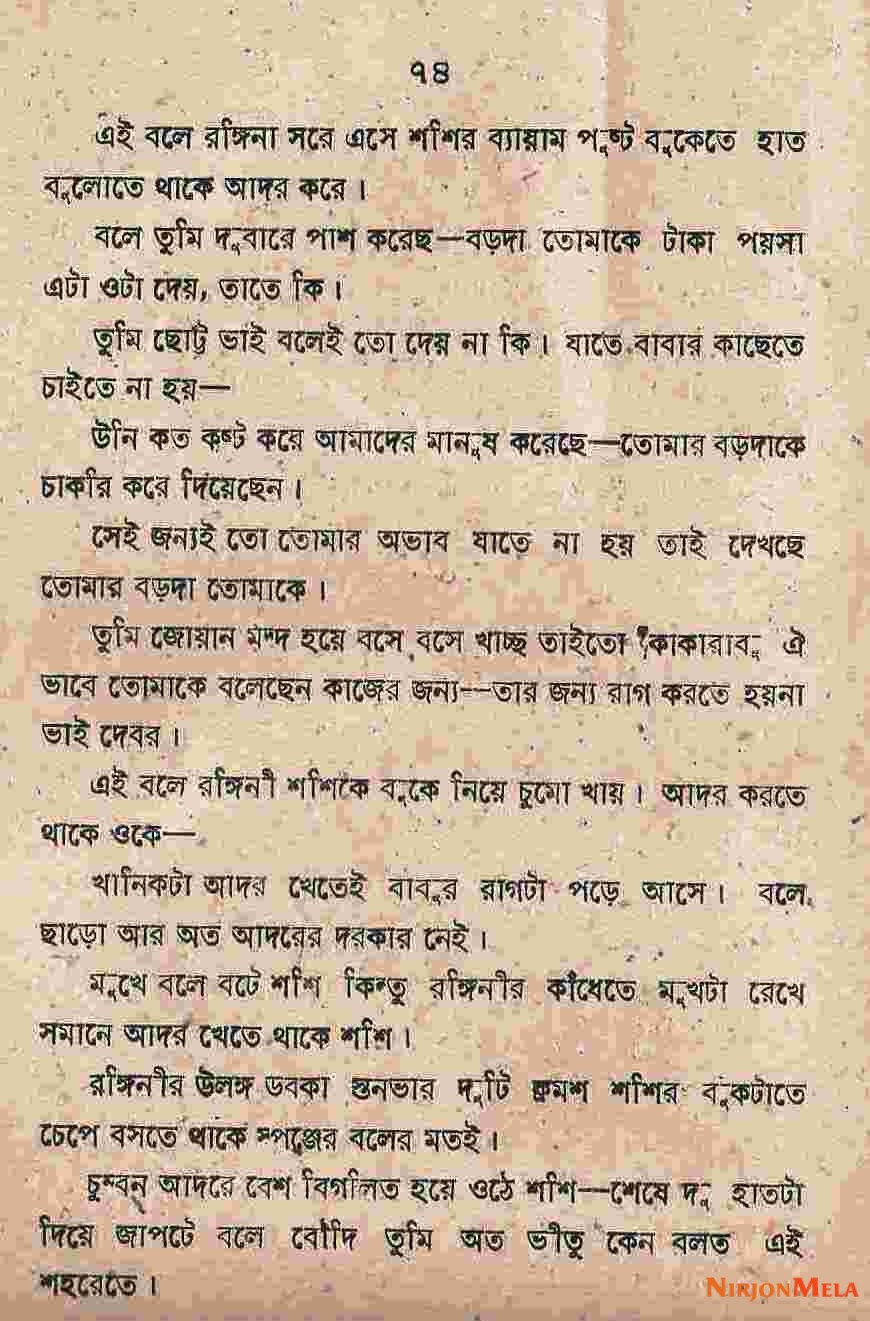 ৭৪
এই বলে রঙ্গিনা সরে এসে শশির ব্যায়াম পুষ্ট বুকেতে হাত
বুলোতে থাকে আদর করে।
বলে তুমি দুবারে পাশ করেছ—বড়দা তোমাকে টাকা পয়সা
এটা ওটা দেয়, তাতে কি।
তুমি ছোট্ট ভাই বলেই তো দেয় না কি। যাতে বাবার কাছেতে
চাইতে না হয়—
উনি কত কষ্ট করে আমাদের মানুষ করেছে—তোমার বড়দাকে
চাকরি করে দিয়েছেন।
সেই জন্যই তো তোমার অভাব যাতে না হয় তাই দেখছে
তোমার বড়দা তোমাকে।
তুমি জোয়ান মদ্দ হয়ে বসে বসে খাচ্ছ তাইতো কাকাবাবু ঐ
ভাবে তোমাকে বলেছেন কাজের জন্য—তার জন্য রাগ করতে হয়না
ভাই দেবর।
এই বলে রঙ্গিনী শশিকে বুকে নিয়ে চুমো খায়। আদর করতে
থাকে ওকে—
খানিকটা আদর খেতেই বাবুর রাগটা পড়ে আসে। বলে
ছাড়ো আর অত আদরের দরকার নেই।
মুখে বলে বটে শশি কিন্তু রঙ্গিনীর কাঁধেতে মুখটা রেখে
সমানে আদর খেতে থাকে শশি।
রঙ্গিনীর উলঙ্গ ডবকা স্তনভার দুটি ক্রমশ শশির বুকটাতে
চেপে বসতে থাকে স্পঞ্জের বলের মতই।
চুম্বন আদরে বেশ বিগলিত হয়ে ওঠে শশি—শেষে দু হাতটা
দিয়ে জাপটে বলে বৌদি তুমি অত ভীতু কেন বলত এই
শহরেতে।
NIRJONMELA